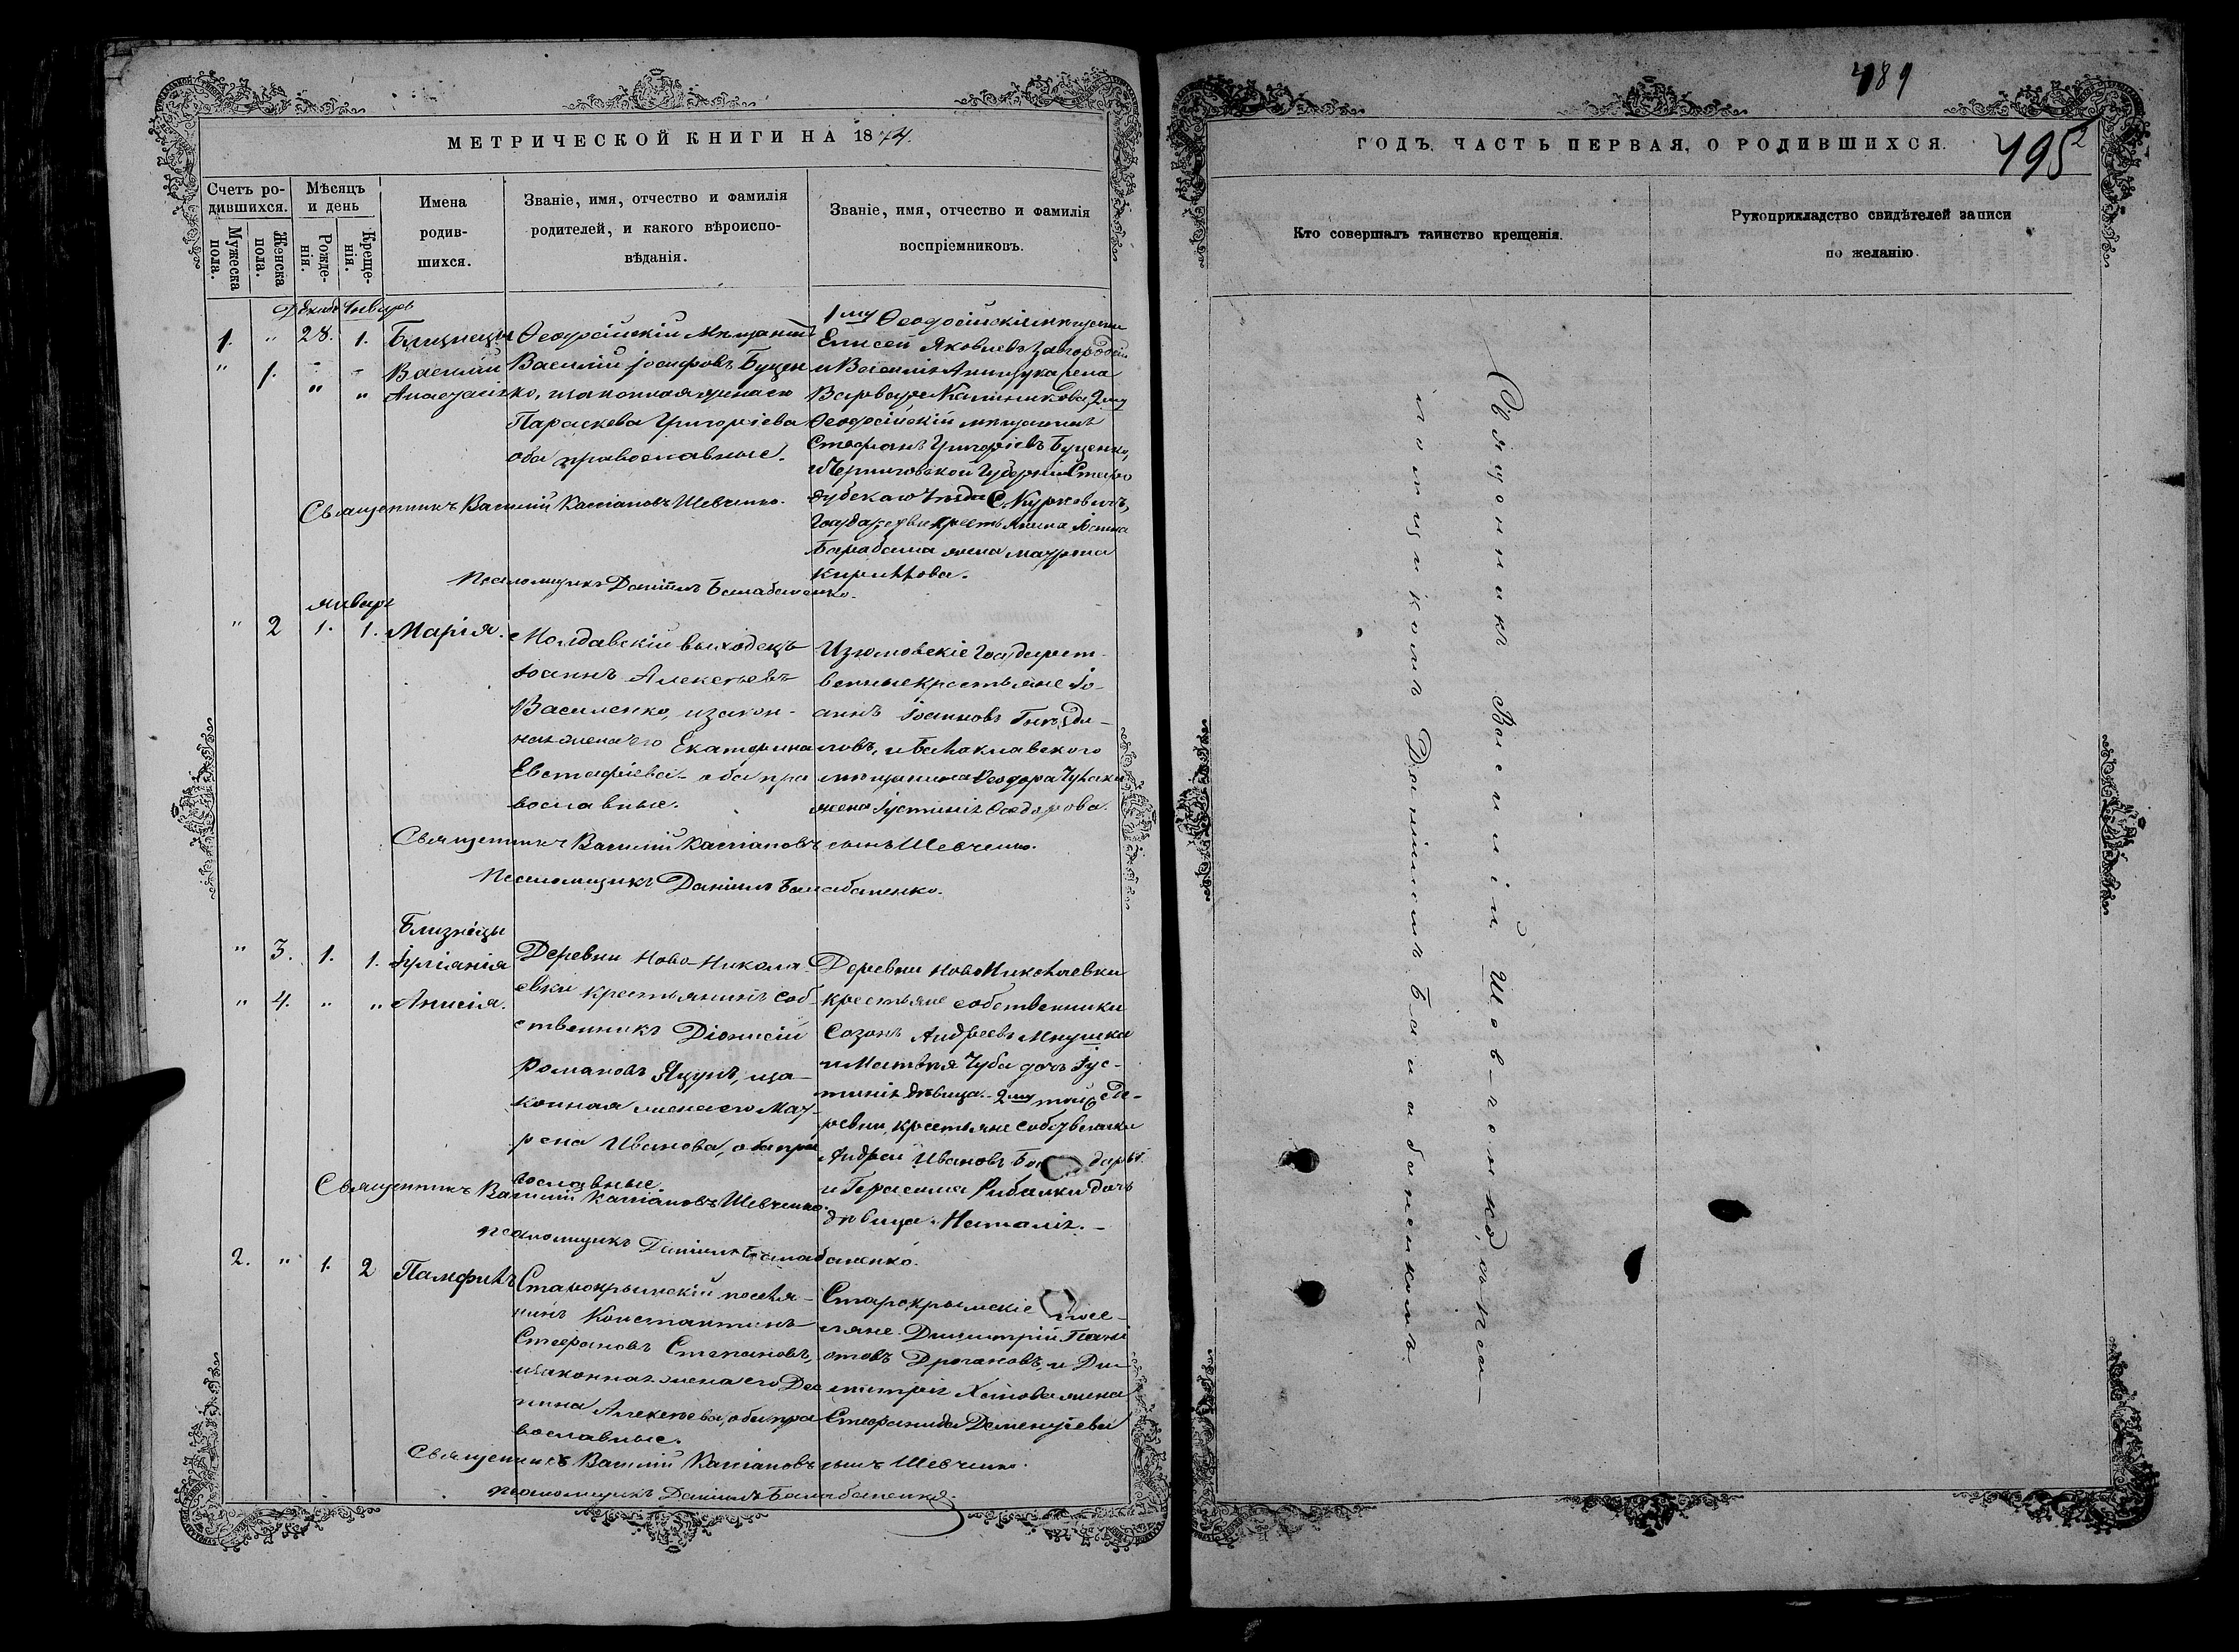 МЕТРИЧЕСКОЙ КНИГИ НА 1874.
Счетъ ро-
дившихся.
Мужеска пола.
Женска пола.
Мѣсяцъ
и день
Рожде-
нія.
Креще-
нія.
Имена
родив-
шихся.
Званіе, имя, отчество и фамилія
родителей, и какого вѣроиспо-
вѣданія.
Званіе, имя, отчество и фамилія
воспріемниковъ.
Январь
1. " 28. 1. Близнецы
" 1. " " Василій
Анастасія
Ѳеодосійскій Мѣщанинъ
Василій Іосифовъ Буцен
ко, изаконная жена его
Параскева Григоріева
оба православные.
1му Ѳеодосійскіе мѣщане
Елисей Яковлевъ
и жена
Варвара 2му
Ѳеодосійскій мѣщанинъ
Стефанъ Григоріевъ Буценко,
и Черниговской Губерніи Старо
дубскаго Уѣзда С. Курковичъ,
Іоанна
Барабаша жена
Кириллова.
Священникъ Василій Кассіановъ Шевченко.
Псаломщикъ Даніилъ Балабаненко.
январь
" 2 1. 1. Марія.
Молдавскій выходецъ
Іоаннъ Алексѣевъ
Василенко, изакон-
ная жена его Екатерина
Евстафіева оба пра
вославные.
Изюмовскіе Государст-
венные крестьяне Іо-
аннъ Іоанновъ
и Балаклавского
мѣщанина Ѳеодора
жена Іустинія Ѳеодорова.
Священникъ Василій Кассіановъ сынъ Шевченко.
Псаломщикъ Даніилъ Балабаненко.
Близнецы
" 3. 1. 1. Іуліанія
" 4. " " Анисія.
Деревни Ново-Никола
евки крестьянинъ соб-
ственникъ Діонисій
Романовъ Яцунъ, иза-
конная жена его Мат-
рена Иванова, оба пра
вославные
Деревни НовоНиколаевки
крестьяне собственники
Созонъ Андреевъ
и Матвѣя Чуба дочь Іус-
тинія дѣвица. 2му той же де-
ревни, крестьяне собственники
Андрей Ивановъ
и Герасима Рибалки дочь
дѣвица Наталія.
Священникъ Василій Кассіановъ Шевченко
псаломщикъ Даніилъ Балабаненко.
2. " 1. 2 Памфилъ
Старокрымскій поселя-
нинъ Константинъ
Стефановъ Степановъ,
изаконная жена его Дес
пина Алексѣева, оба пра
вославные.
Старокрымскіе посе-
ляне Димитрій Пана
отовъ Драгановъ, и Ди-
митрія жена
Стефанида
Священникъ Василій Кассіановъ сынъ Шевченко.
псаломщикъ Даніилъ Балабаненко.
489
495
ГОДЪ. ЧАСТЬ ПЕРВАЯ, О РОДИВШИХСЯ.
Кто совершалъ таинство крещенія.
Рукоприкладство свидѣтелей записи
по желанію.
Священникъ Василій Шевченко, съ пса-
ломщикомъ Даніиломъ Балабаненкомъ